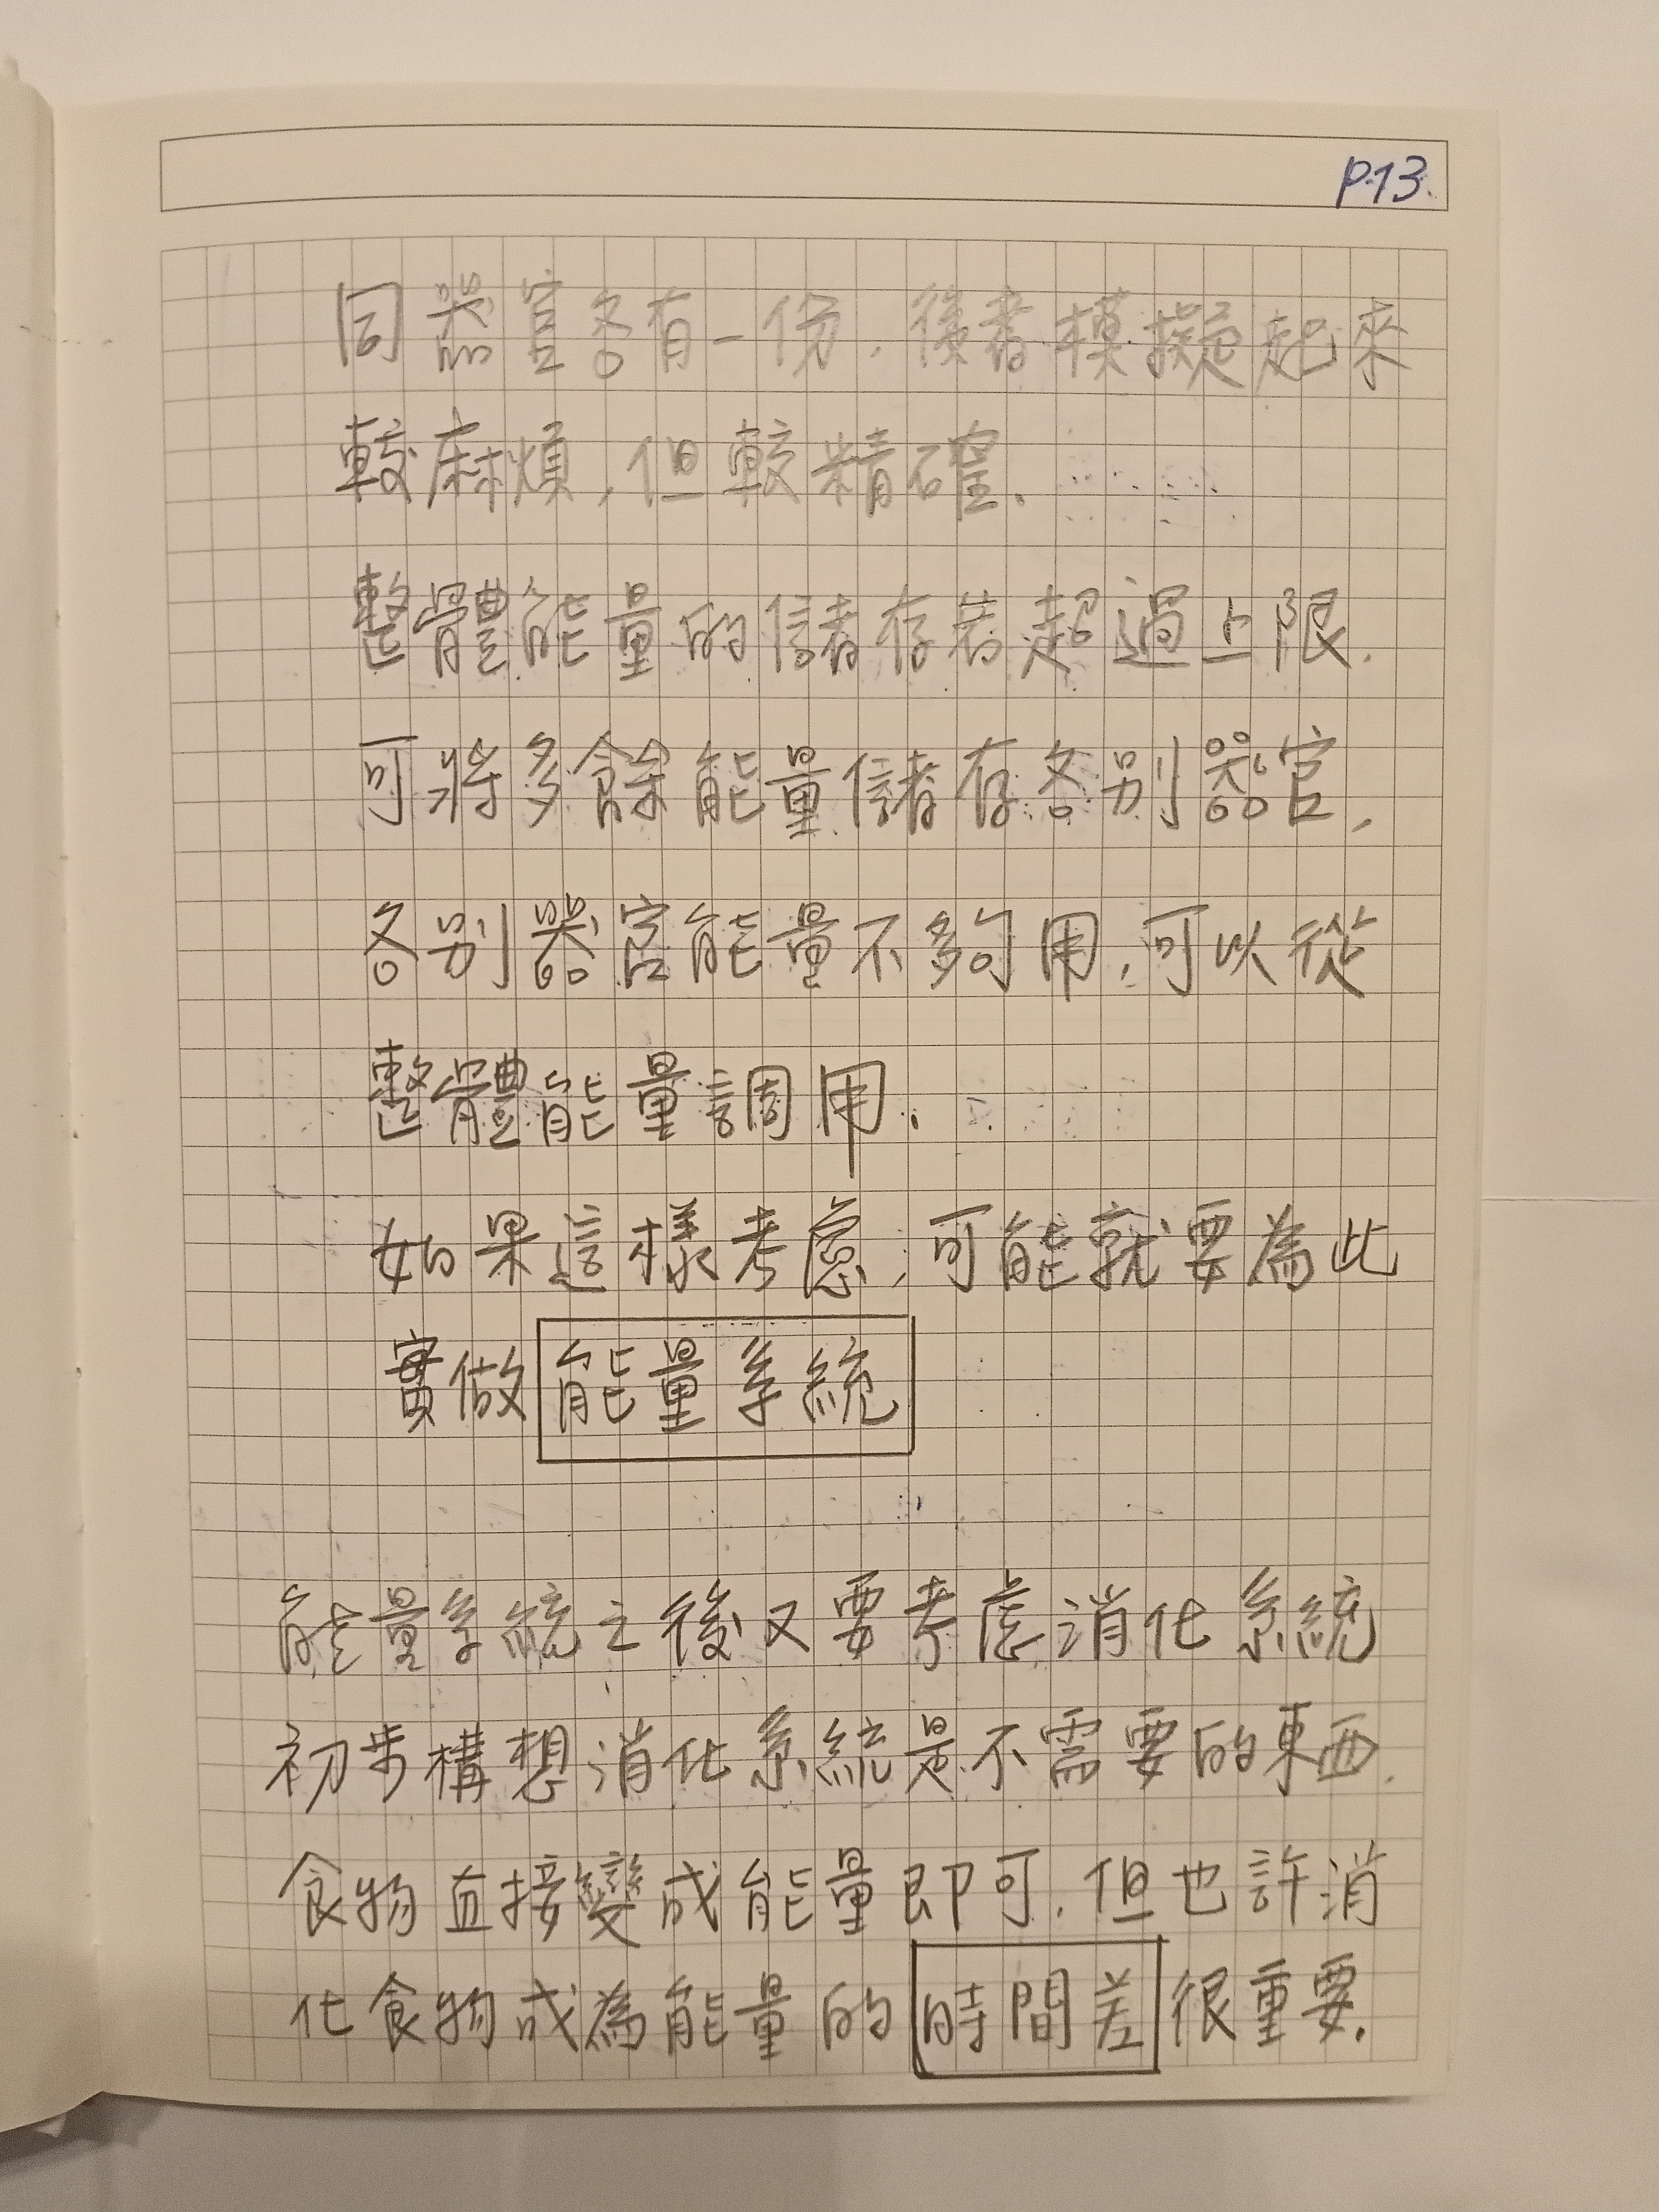 P.13.
同器官各有一份,後者模擬起來
較麻煩,但較精確.
整體能量的儲存若超過上限.
可將多餘能量儲存各別器官,
各別器官能量不夠用,可以從
整體能量調用.
如果這樣考慮,可能就要為此
實做能量系統
能量系統之後又要考慮消化系統
初步構想消化系統是不需要的東西.
食物直接變成能量即可.但也許消
化食物成為能量的時間差很重要.